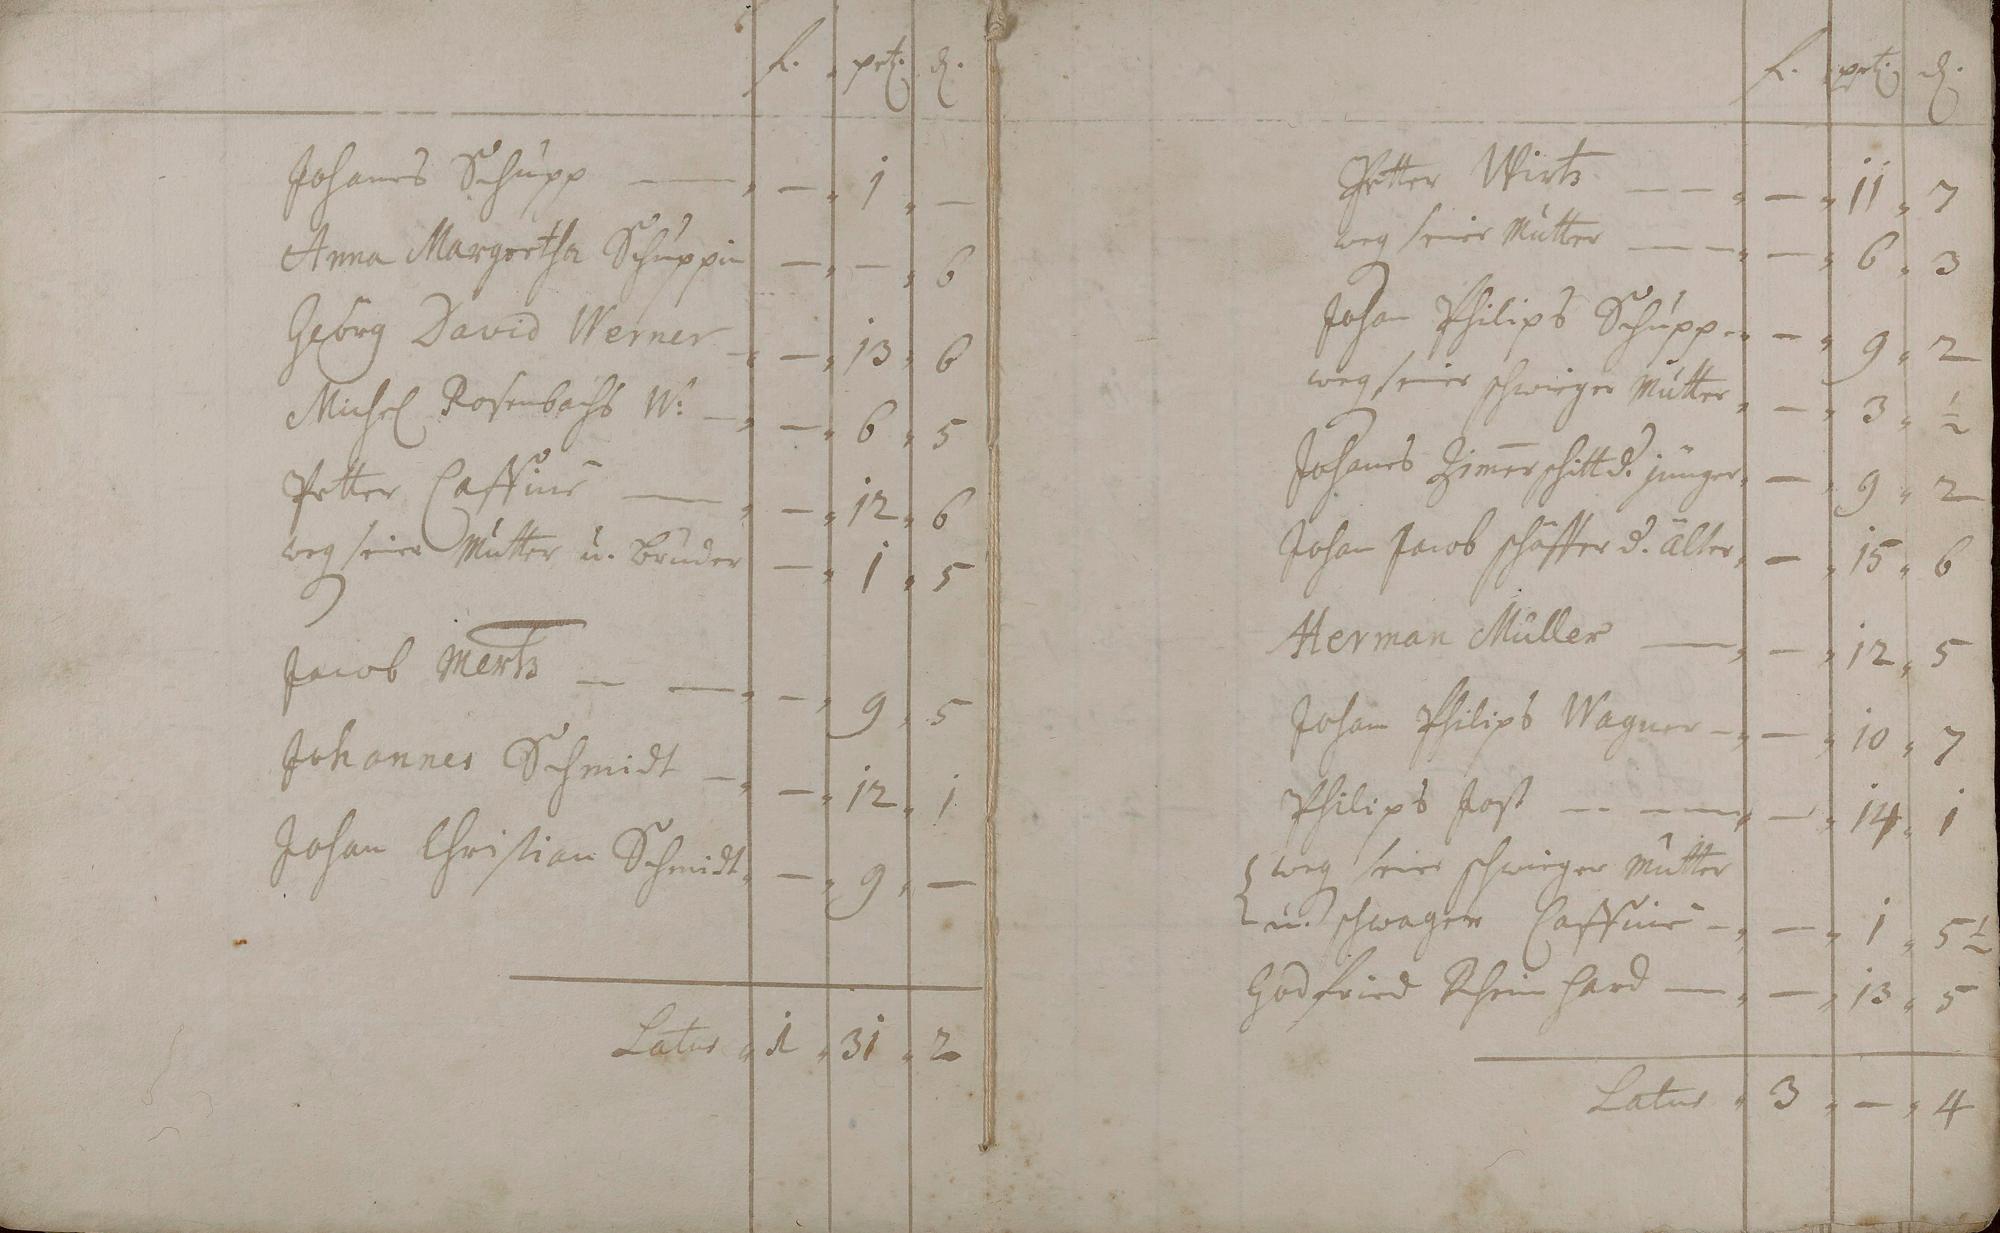 f. ptz. d.
Johanes Schupp — „ — „ 1 „ —
Anna Margretha Schuppin — „ — „ 6
Georg David Werner — „ — „ 13 „ 6
Michel Rosenbachs W: — „ — „ 6 „ 5
Petter Cassius — „ — „ 12 „ 6
weg seiner Mutter u. Bruder — „ 1 „ 5
Jacob Mertz — — „ — „ 9 „ 5
Johannes Schmidt — „ — „ 12 „ 1
Johan Christian Schmidt „ — „ 9 „ —
Latus „ 1 „ 31 „ 2
f. ptz. d.
Petter Wirtz — — „ — „ 11 „ 7
weg seiner Mutter — — „ — „ 6 „ 3
Johan Philips Schupp — „ — „ 9 „ 2
weg seiner schwieger Mutter „ — „ 3 „ ½
Johanes Zimerschitt d. jünger „ — „ 9 „ 2
Johan Jacob schäffer d. älter „ — „ 15 „ 6
Herman Müller — „ — „ 12 „ 5
Johan Philips Wagner — „ — „ 10 „ 7
Philips Jost — — „ — „ 14 „ 1
weg seiner schwieger Mutter
u. schwager Cassius — „ — „ 1 „ 5½
Godfried Rheinhard — „ — „ 13 „ 5
Latus „ 3 „ — „ 4